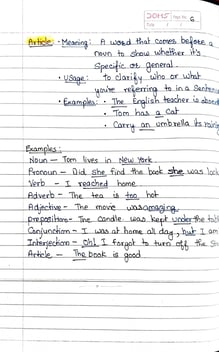 Article • Meaning: A word that comes before a
noun to show whether it's
specific or general.
• Usage: To clarify who or what
you're referring to in a
• Examples: • The English teacher is
• Tom has a Cat
• Carry an umbrella its
Examples:
Noun - Tom lives in New York.
Pronoun - Did she find the book she was
Verb - I reached home
Adverb - The tea is too hot
Adjective - The movie was amazing.
Preposition - The candle was kept under the
Conjunction - I was at home all day, but I am
Interjection - Oh! I forgot to turn off the
Article - The book is good